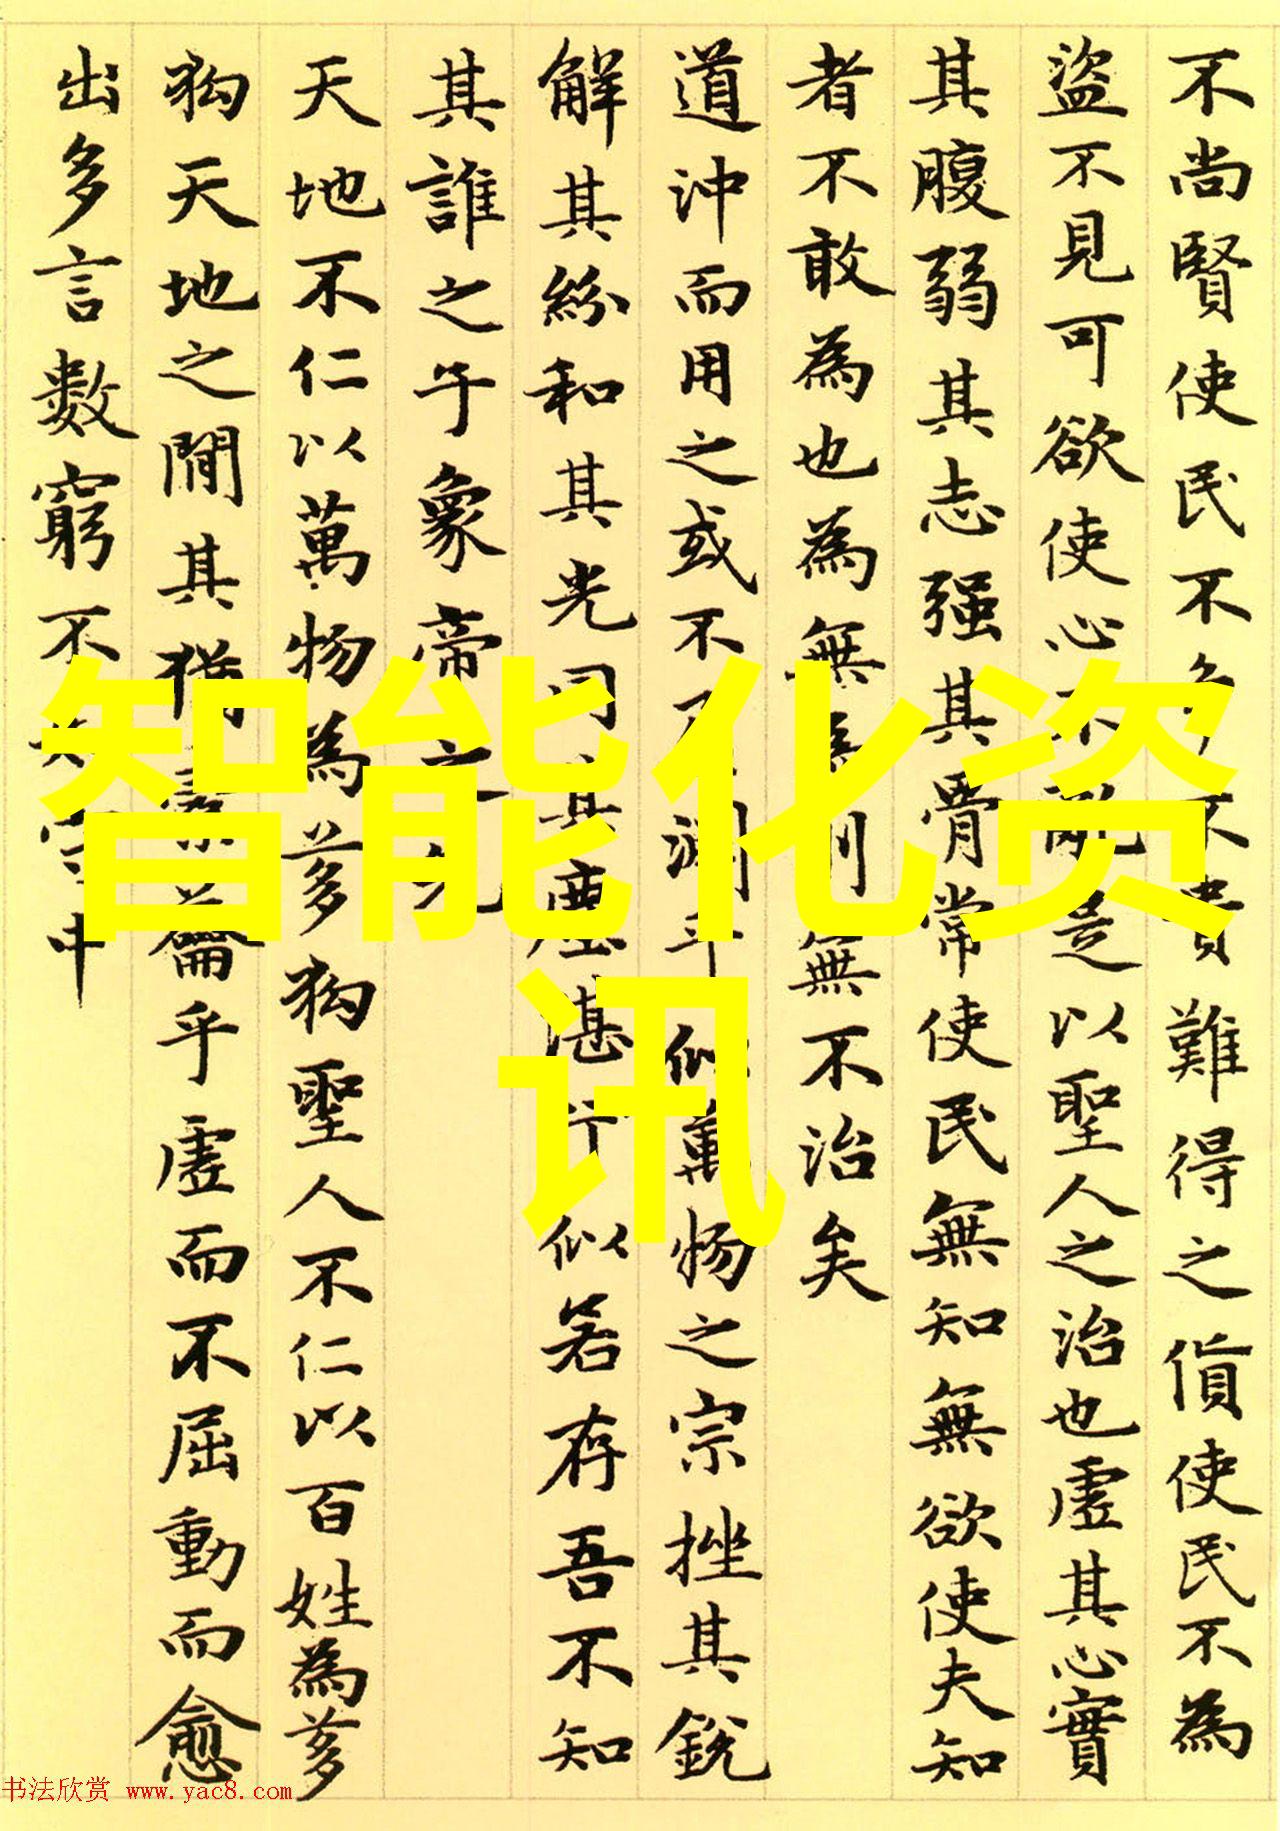 不尚賢使民不爭不貴難得之貨使民不為
盜不見可欲使心不亂是以聖人之治也虛其心實
其腹弱其志强其骨常使民無知無欲使夫知
者不敢為也為無為則無不治矣
道沖而用之或不淵乎似萬物之宗挫其銳
解其紛和其光同其塵湛兮似若存吾不知
其誰之子象帝之先
天地不仁以萬物為芻狗聖人不仁以百姓為芻
狗天地之間其猶橐籥乎虛而不屈動而愈
出多言數窮不如守中
智能化资
讯
书法欣赏 www.yac8.com